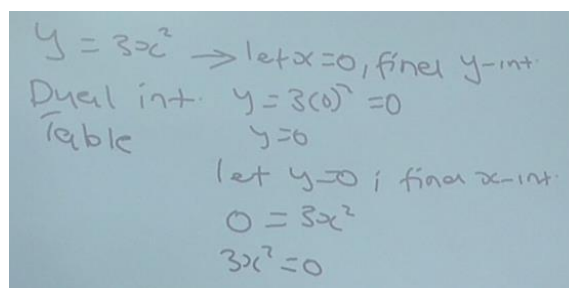 y = 3x² → let x=0, find y-int.
Dual int. y = 3(0)² = 0
Table y=0
let y=0 ; find x-int.
0 = 3x²
3x² = 0